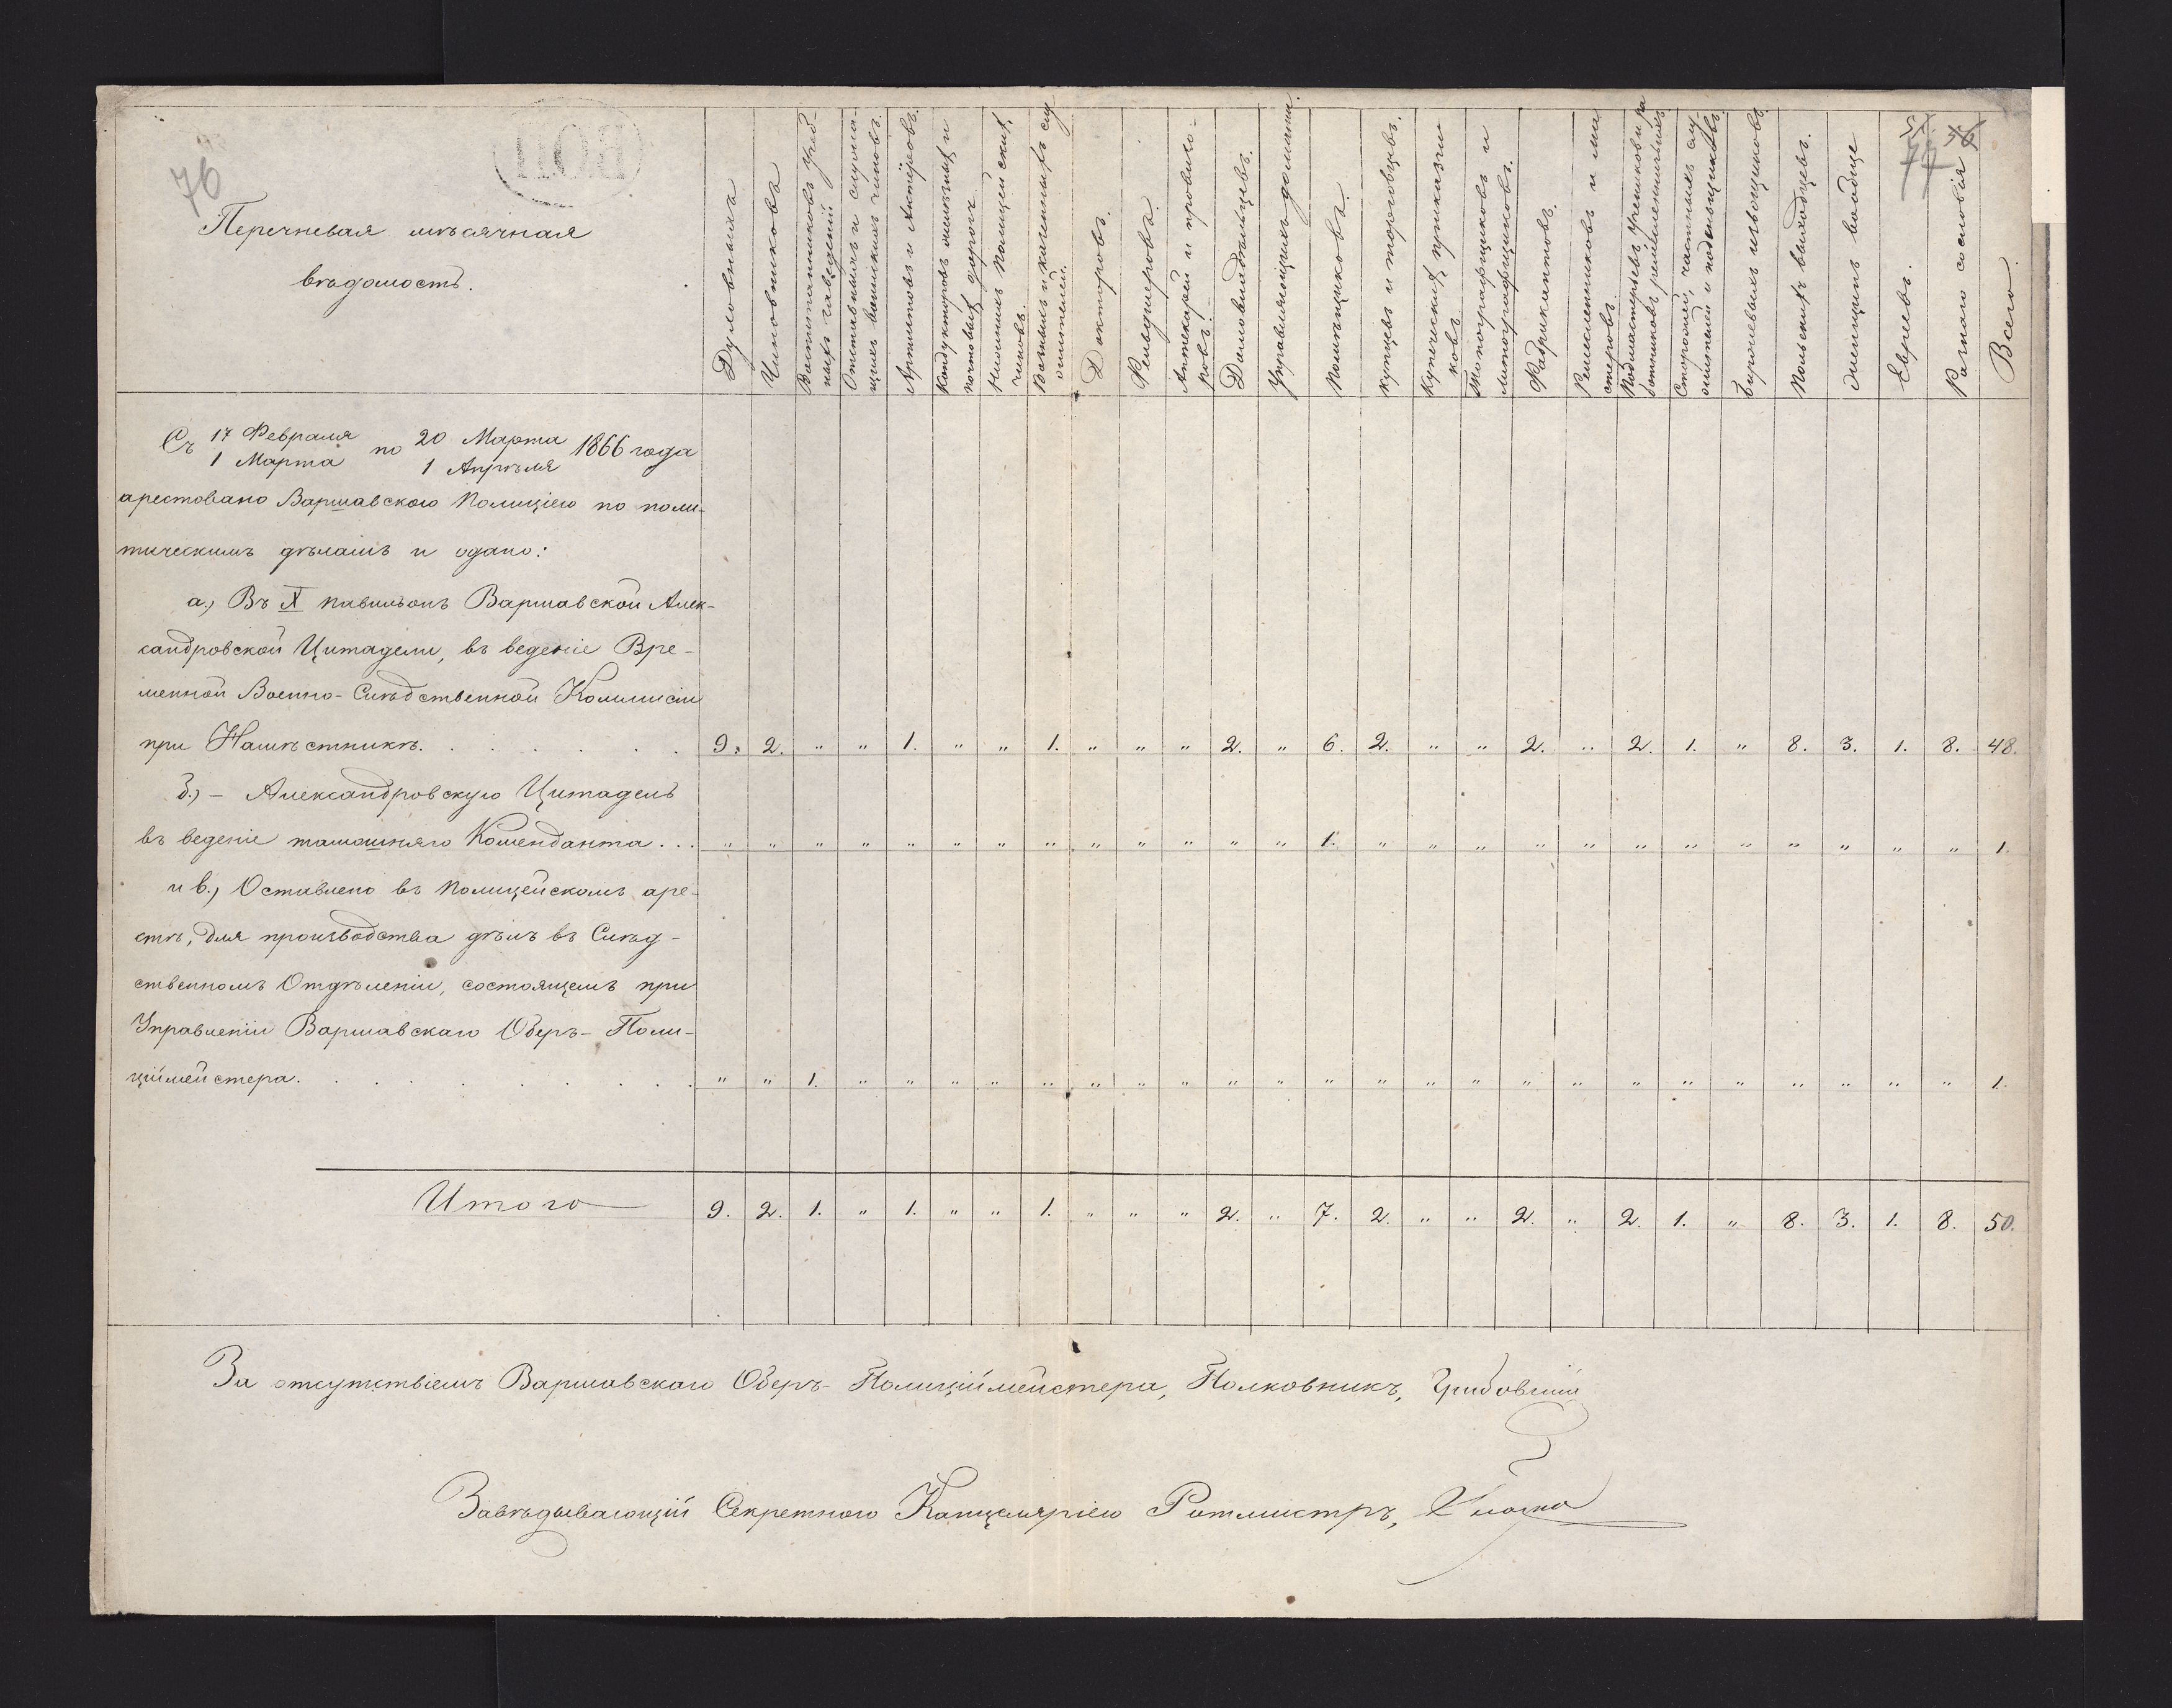 76
57. 46
77
Перечневая мѣсячная
вѣдомость.
Духовныхъ
Чиновниковъ
Воспитанниковъ Учеб-
ныхъ заведеній
Отставныхъ и служа-
щихъ воинскихъ чиновъ.
Артистовъ и Актёровъ.
Кондукторовъ желѣзныхъ и
почтовыхъ дорогъ.
Низшихъ Полицейскихъ
чиновъ.
Вольныхъ и казенныхъ слу
жителей.
Докторовъ.
Фельдшеровъ.
Аптекарей и провизо-
ровъ.
Домовладѣльцевъ.
Управляющихъ домами.
Помѣщиковъ.
Купцевъ и торговцевъ.
Купеческихъ прикащи
ковъ.
Типографщиковъ и
литографщиковъ.
Фабрикантовъ.
Ремесленниковъ и ма
стеровъ.
Подмастерьевъ, учениковъ и ра
ботниковъ ремесленничьихъ
Сторожей, частныхъ слу
жителей и поденьщиковъ
Биржевыхъ извощиковъ.
Польскихъ выходцевъ.
Женщинъ вообще
Евреевъ.
Разнаго сословія
Всего
Съ 17 Февраля / 1 Марта по 20 Марта / 1 Апрѣля 1866 года
арестовано Варшавскою Полиціею по поли-
тическимъ дѣламъ и сдано:
а.) Въ X павильонъ Варшавской Алек-
сандровской Цитадели, въ веденіе Вре-
менной Военно-Слѣдственной Коммисіи
при Намѣстникѣ. . . . . . . 9. 2. " " 1. " " 1. " " " 2. " 6. 2. " " 2. " 2. 1. " 8. 3. 1. 8. 48.
б.) – Александровскую Цитадель
въ веденіе тамошняго Коменданта . . . " " " " " " " " " " " " " 1. " " " " " " " " " " " " 1.
и в.) Оставлено въ Полицейскомъ аре-
стѣ, для производства дѣлъ въ Слѣд-
ственномъ Отдѣленіи, состоящемъ при
Управленіи Варшавскаго Оберъ-Поли-
ціймейстера. . . . . . . . . " " 1. " " " " " " " " " " " " " " " " " " " " " " " 1.
Итого 9. 2. 1. " 1. " " 1. " " " 2. " 7. 2. " " 2. " 2. 1. " 8. 3. 1. 8. 50.
За отсутствіемъ Варшавскаго Оберъ-Полиціймейстера, Полковникъ,
Завѣдывающій Секретною Канцеляріею Ротмистръ,